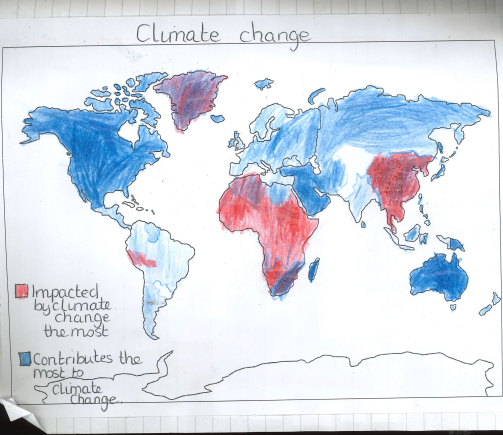 Climate change
Impacted
by climate
change
the most
Contributes the
most to
Climate
Change.